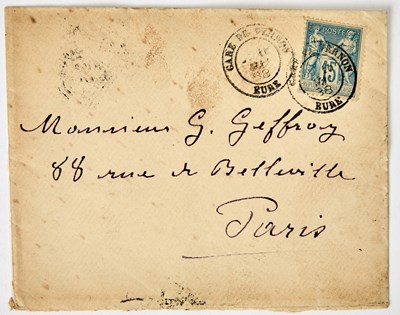 GARE DE VERNON
EURE
POSTE
15
GARE DE VERNON
EURE
Monsieur G. Geffroy
88 rue de Belleville
Paris